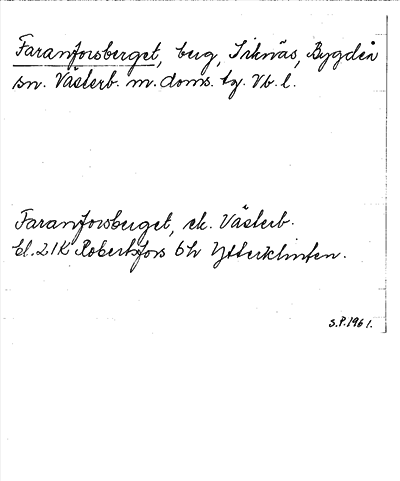 Faranforsberget, berg, Siknäs, Bygdeå
sn. Västerb. m. doms. tg. Vb. l.
Faranforsberget, ek. Västerb.
bl. 21K Robertsfors 6h Ytterklinten.
S.P. 1961.